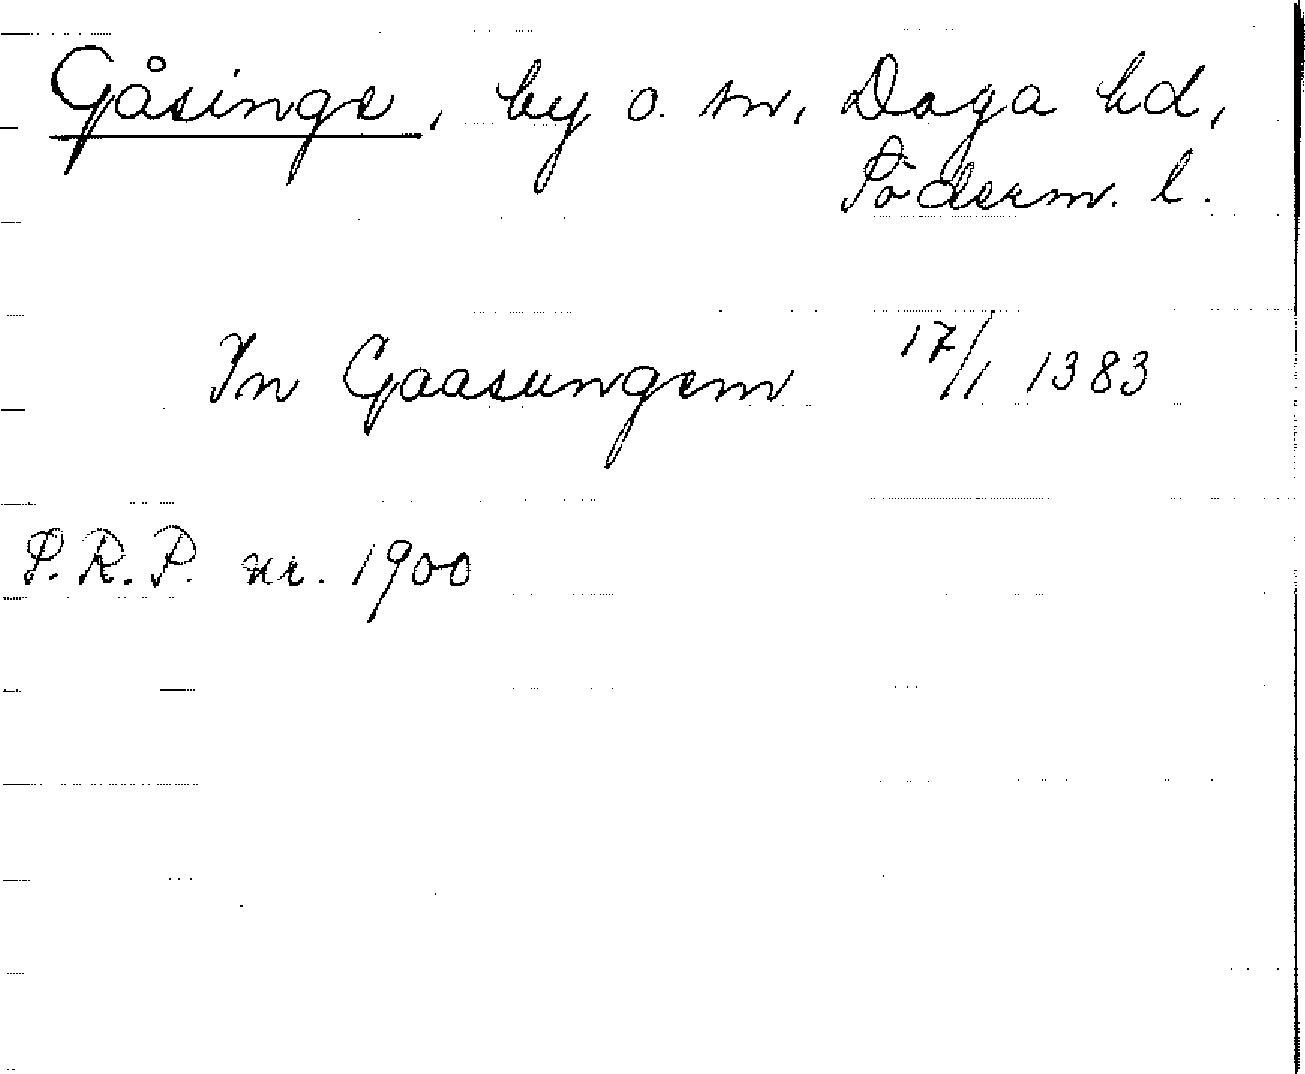 Gåsinge, by o. sn, Daga hd,
Söderm. l.
In Gaasungem 17/1 1383
S.R.P. nr. 1900